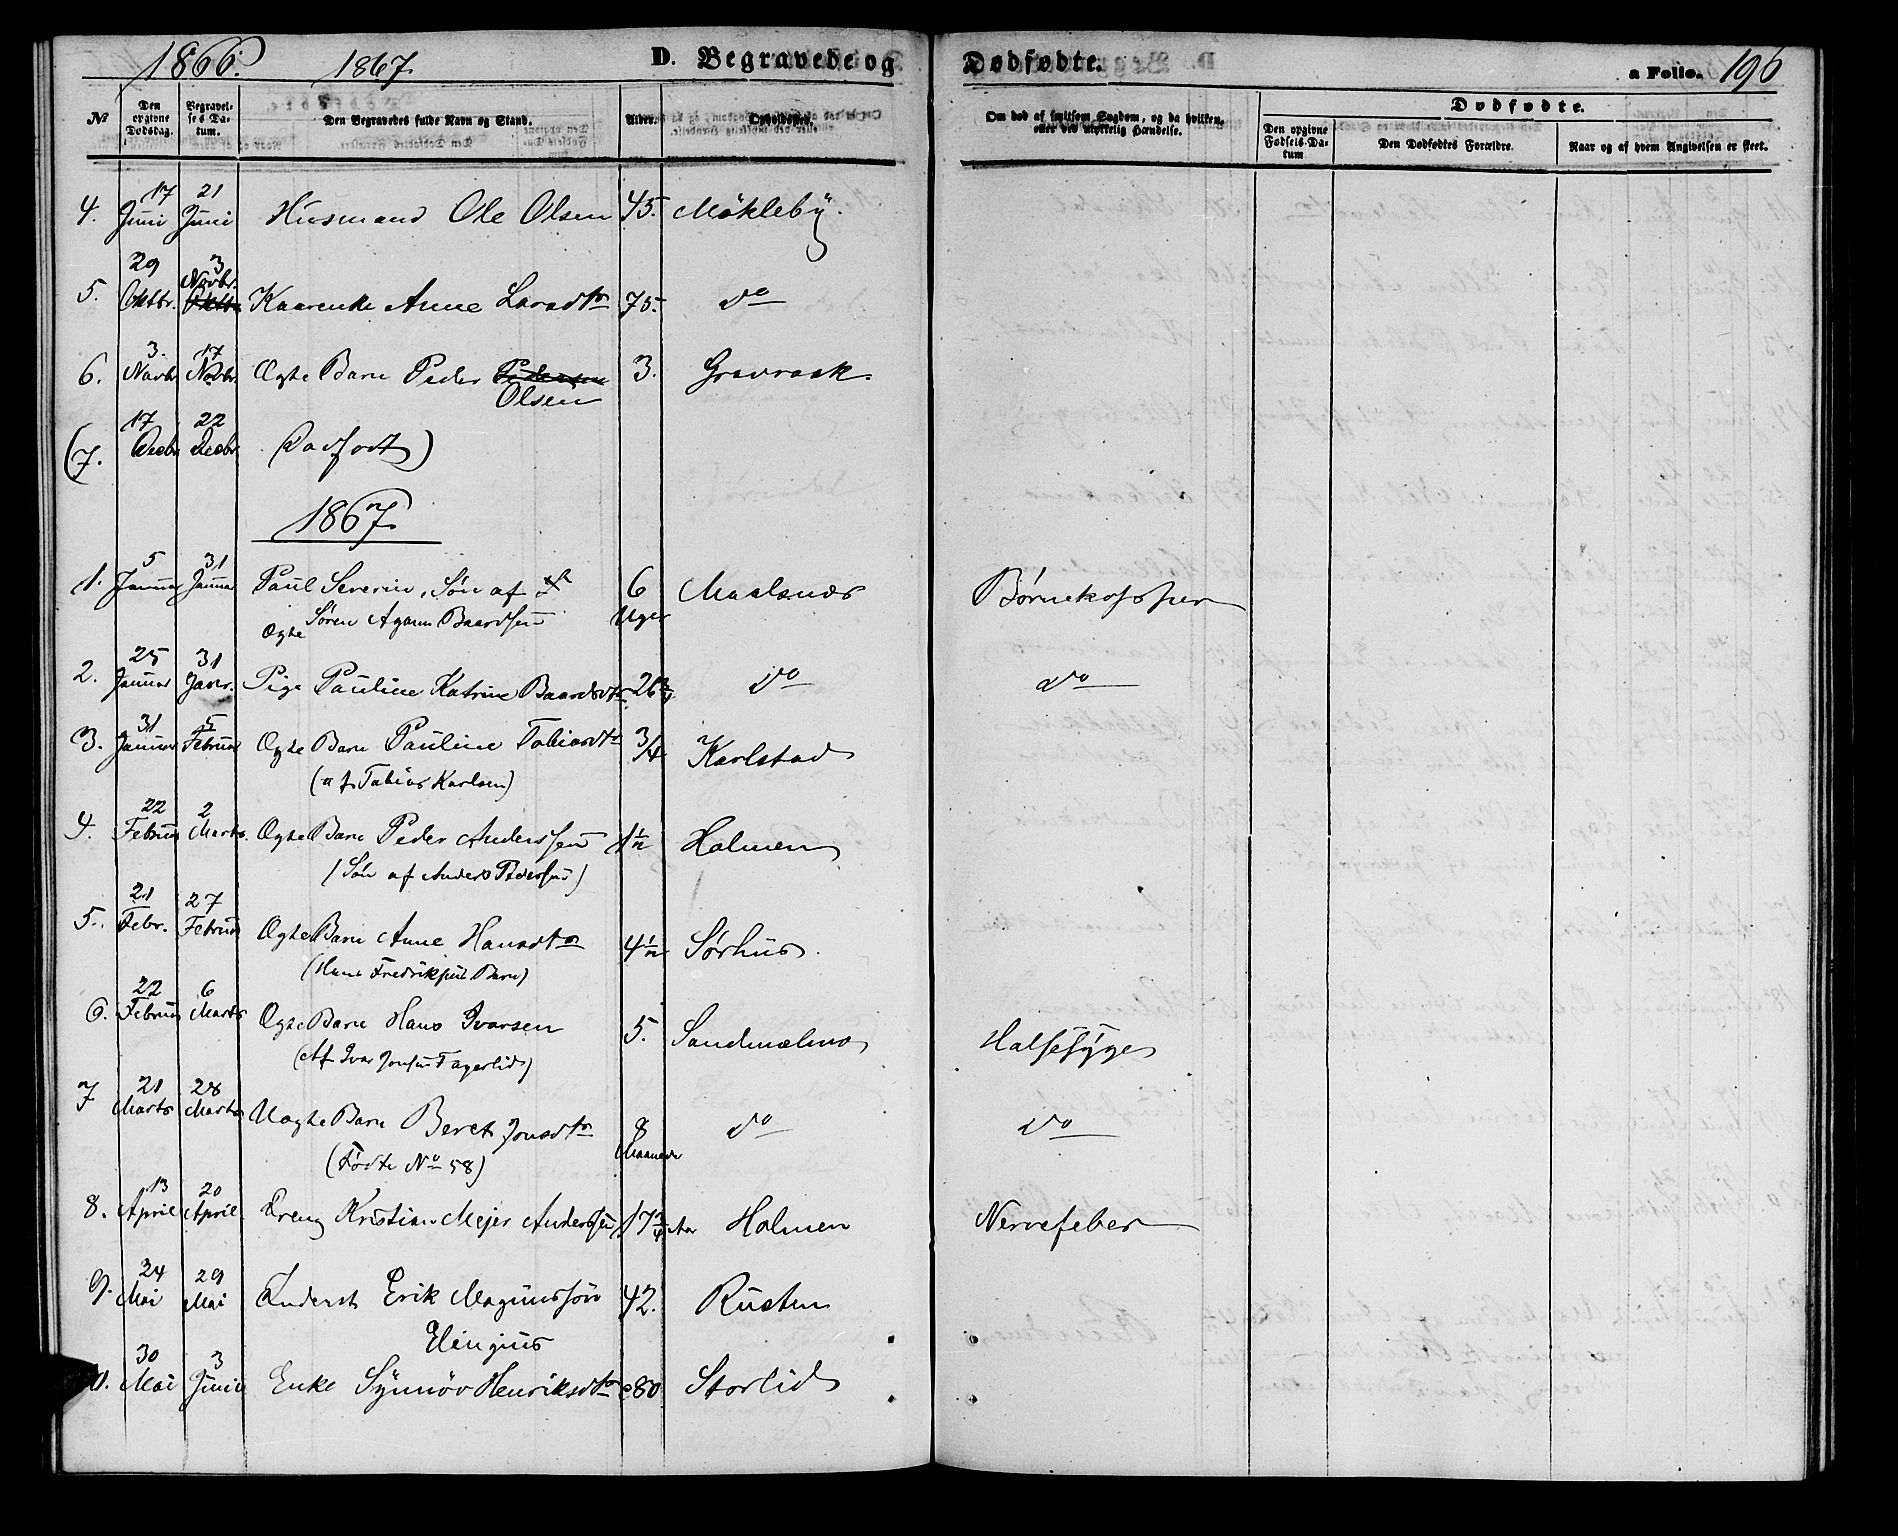 1866. 1867. D. Begravede og Dødfødte. a Folio. 196
No Den opgivne Dødsdag. Begravelses Datum. Den Begravedes fulde Navn og Stand. Alder. Opholdssted. Om død af smitsom Sygdom, og da hvilken, eller ved ulykkelig Hændelse. Dødfødte.
Den opgivne Fødsels-Datum Den Dødfødtes Forældre. Naar og af hvem Angivelsen er skeet.
4. 17 Juni 21 Juni Husmand Ole Olsen 45. Mökleby.
5. 29 Oktbr. 3 Novbr. Kaarenke Anne Larsdtr 75. do
6. 3. Novbr 17 Novbr. Ægte Barn Peder Pedersen Olsen 3. Gravraak.
(7. 17 Decbr 22 Decbr Dødfødt)
1867.
1. 5 Januar 31 Januar Paul Severin, Søn af 6 Uger Maalsnæs Børnekopper
Ægte Søren Agam Baardsen
2. 25 Januar 31 Janr. Pige Pauline Katrine Baardsdtr 26 do do
3. 31 Januar 5 Februar Ægte Barn Pauline Tobiasdtr 3/4 Karlstad
(af Tobias Karlsen)
4. 22 Februar 2 Marts. Ægte Barn Peder Anderssen 1 1/2 Holmen
(Søn af Anders Pedersen)
5. 21 Febr. 27 Februar Ægte Barn Anne Hansdtr 4 1/2 Sørhus.
(Hans Fredriksens Barn)
6. 22 Februar 6 Marts Ægte Barn Hans Ivarsen 5. Sandmælmo Halsesyge
(Af Ivar Jonsen Fagerlid)
7 21 Marts 28 Marts Uægte Barn Beret Jonsdtr 8 Maaneder do do
(Fødte No 58)
8. 13 April 20 April. Dreng Kristian Mejer Anderssen 17 3/4 Aar Holmen Nervefeber
9. 24 Mai 29 Mai Inderst Erik Magnussøn 42. Rusten
Elingius
30 Mai 3 Juni Enke Synnøv Henriksdtr 80 Storlid